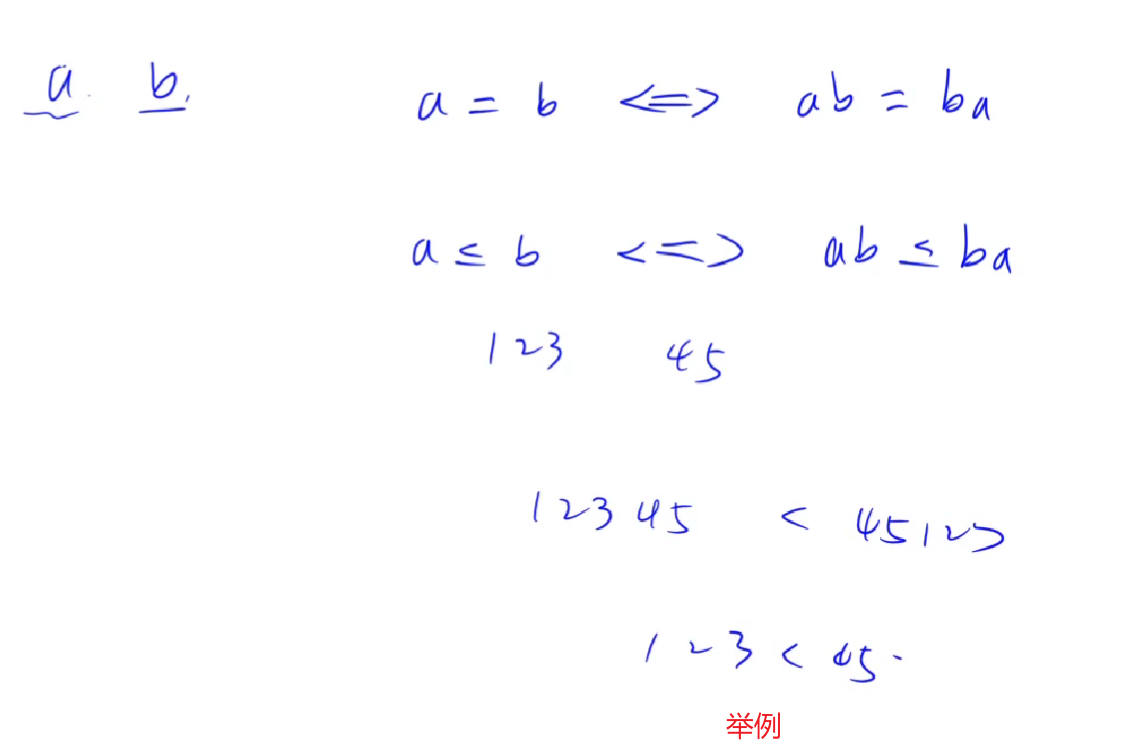 a. b. a = b <=> ab = ba
a ≤ b <=> ab ≤ ba
123 45
12345 < 45123
123 < 45.
举例